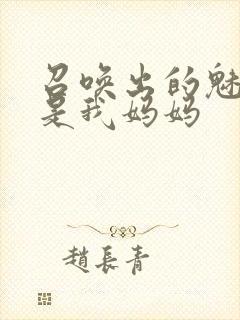 召唤出的魅
是我妈妈
趙長青